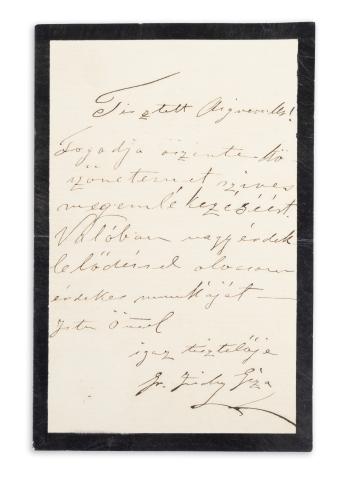 Tisztelt
Fogadja őszinte kö
szönetemet szives
megemlékezéséért.
Valóban nagy érdek
lelődéssel olvasom
érdekes munkáját —
Isten Önnel
igaz tisztelője
Gr. Zichy Géza